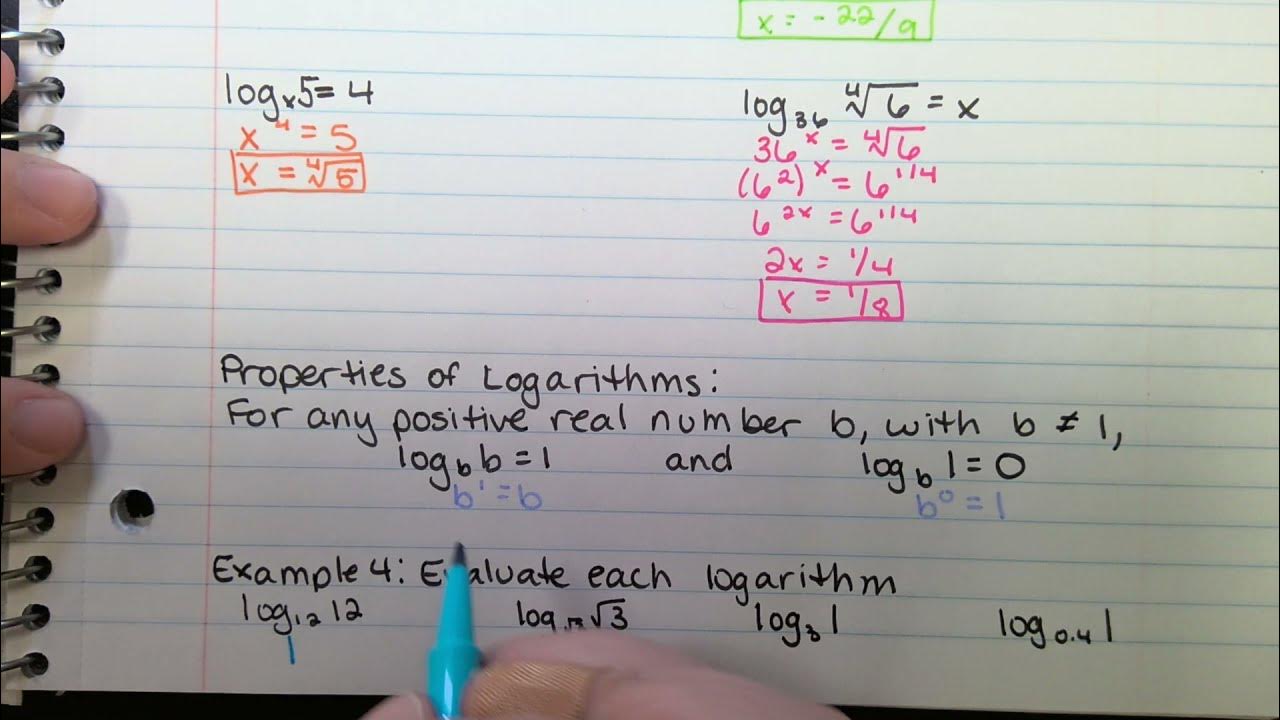 x = - 22/9
log_x 5 = 4
x^4 = 5
x = ∜5
log_36 ∜6 = x
36^x = ∜6
(6^2)^x = 6^1/4
6^2x = 6^1/4
2x = 1/4
x = 1/8
Properties of Logarithms:
For any positive real number b, with b ≠ 1,
log_b b = 1 and log_b 1 = 0
b^1 = b b^0 = 1
Example 4: Evaluate each logarithm
log_12 12 log √3 log_8 1 log_0.4 1
1